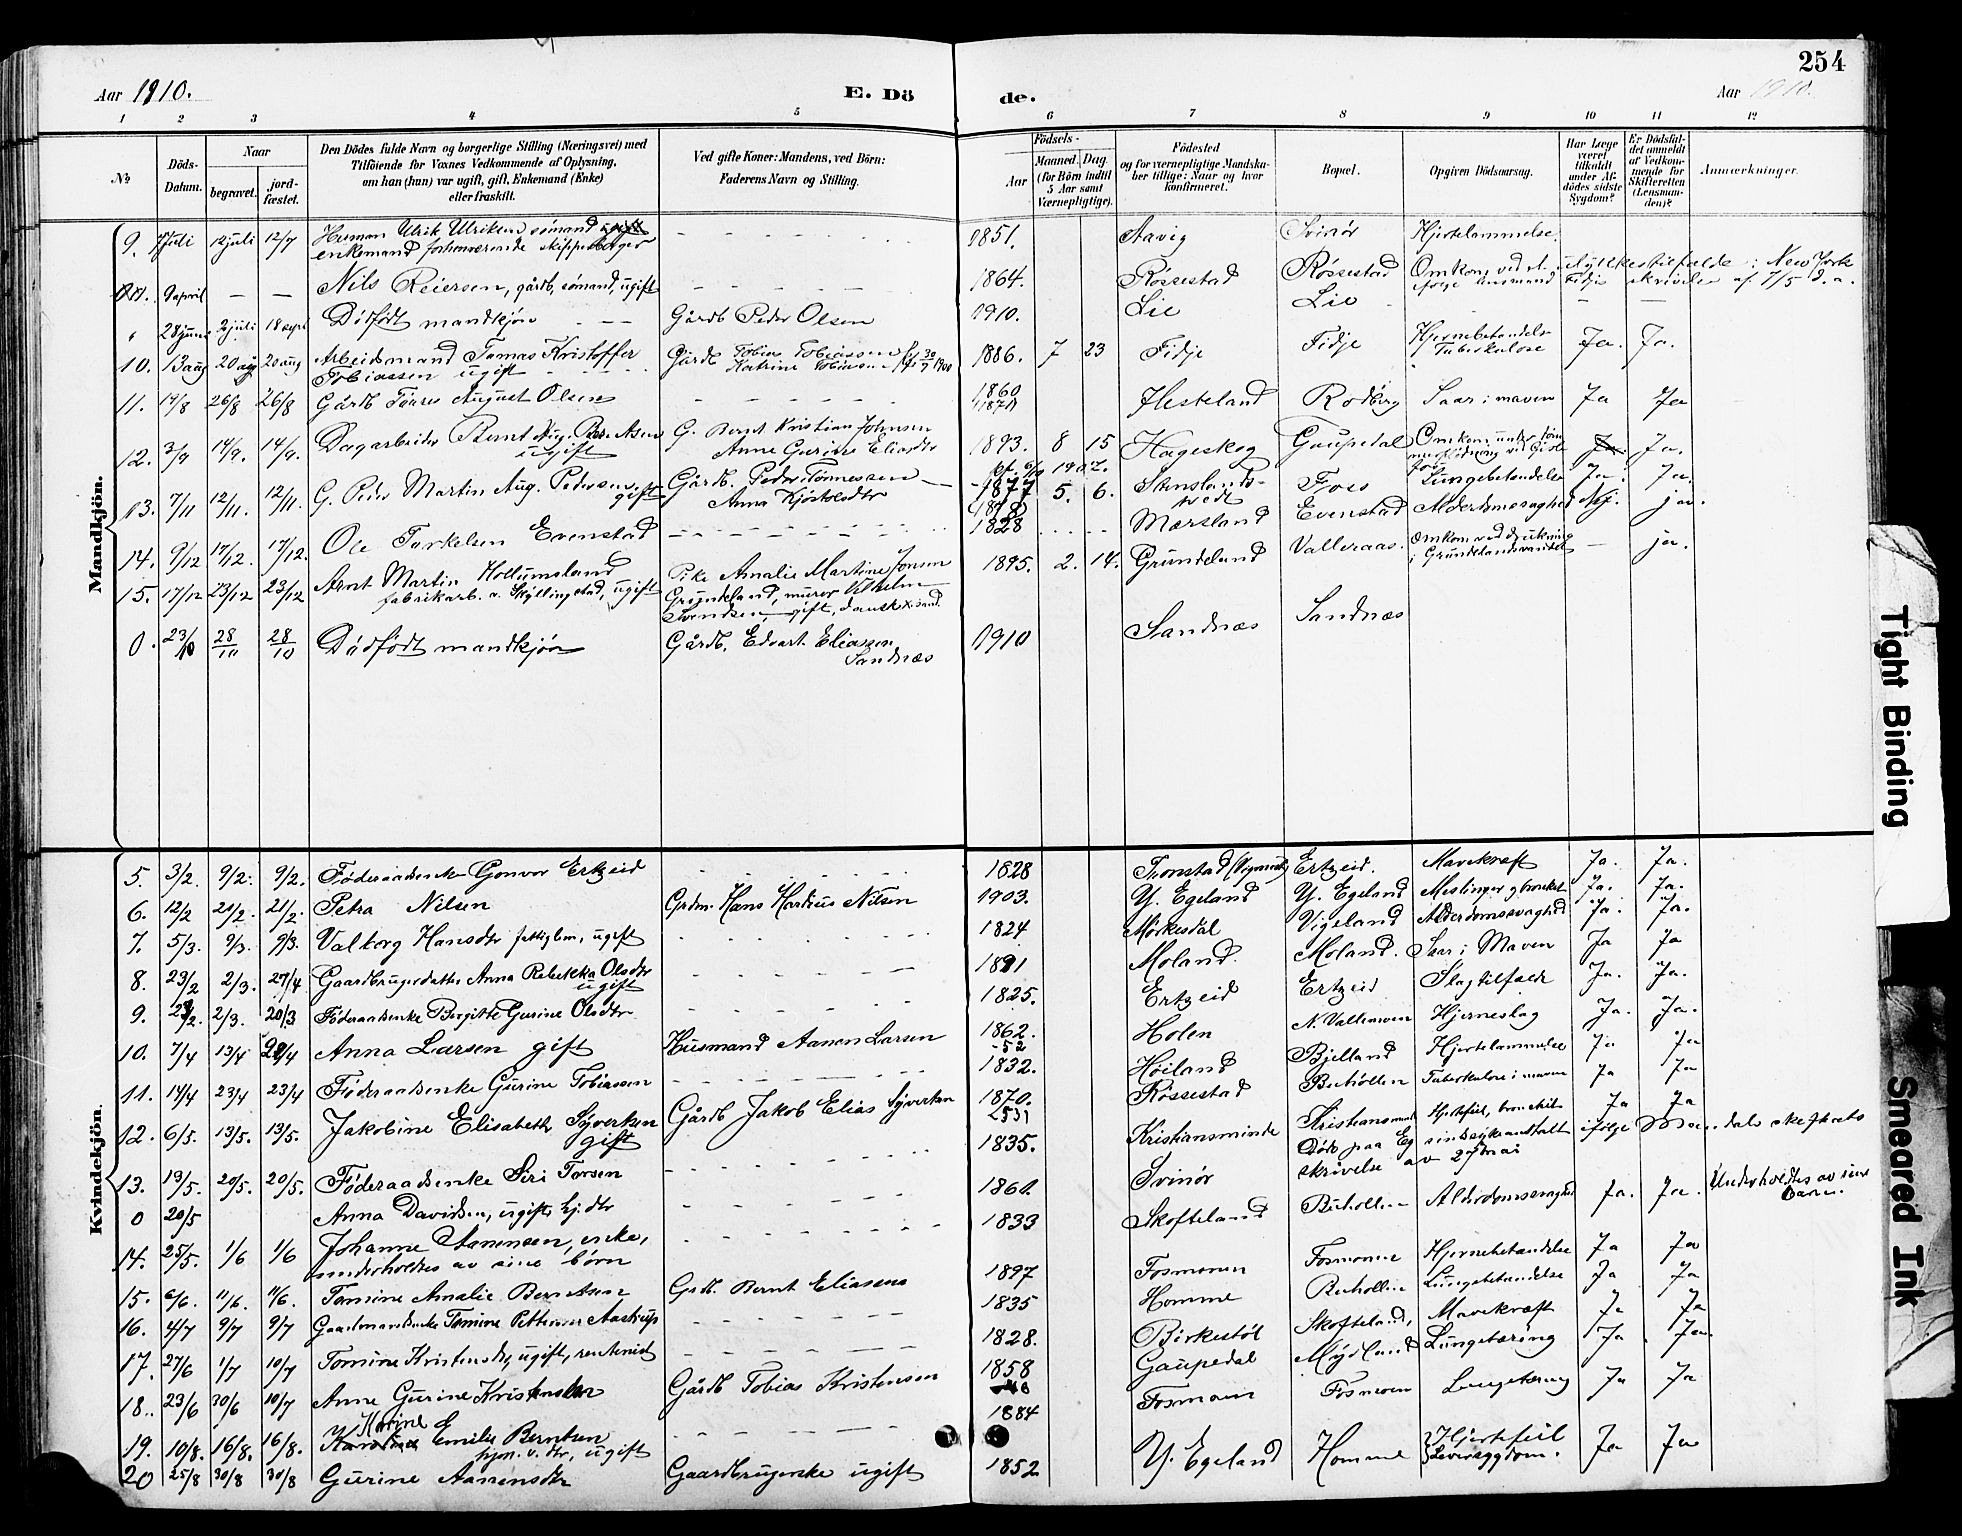 254
Aar 1910.
E. Dö
de.
Aar 1910.
1 2 3 4 5 6 7 8 9 10 11 12
No
Döds-Datum.
Naar
begravet.
jord-fæstet.
Den Dödes fulde Navn og borgerlige Stilling (Næringsvei) med
Tilföiende for Voxnes Vedkommende af Oplysning,
om han (hun) var ugift, gift, Enkemand (Enke)
eller fraskilt.
Ved gifte Koner: Mandens, ved Börn:
Faderens Navn og Stilling.
Födsels-
Aar
Maaned. Dag.
(for Börn indtil
5 Aar samt
Værnepligtige).
Födested
og for værnepligtige Mandska-
ber tillige: Naar og hvor
konfirmeret.
Bopæl.
Opgiven Dödsaarsag.
Har Læge
været
tilkaldt
under Af-
dödes sidste
Sygdom?
Er Dödsfal-
det anmeldt
af Vedkom-
mende for
Skifteretten
(Lensman-
den)?
Anmærkninger.
Mandkjön.
9. juli 12 juli 12/7 Herman Ulrik Ulriksen sømand
enkemand forhenværende 1851. Aavig Svinør Hjertelammelse.
9 april — — Nils Reiersen, gårdb, sømand, ugift 1864. Røssestad Røssestad Omkom ved et ulykkestilfælde i New York
ifølge skrivelse af 7/5 d.a.
28 juni 2 juli 18 sept Dødfødt mandkjøn Gårdb Peder Olsen 1910. Lie Lie — —
10. 13 aug 20 aug 20 aug Arbeidsmand Tomas Kristoffer
Tobiassen ugift Gårdb Tobias Tobiassen
Katrine 1886. 7 23 Fidje Fidje Hjernebetændelse
Tuberkulose Ja. Ja.
11. 19/8 26/8 26/8 Gårdb Tørres August Olsen 1860 Hesteland Rødberg Saar i maven Ja Ja
12. 3/9 14/9. 14/9. Dagarbeider Bernt Aug. Berntsen
ugift G. Bernt Kristian Johnsen
Anne Gurine Eliasdtr 1893. 8 15 Hageskog Gaupedal Omkom under tøm-
merflødning Ja. Ja.
13. 7/11 12/11. 12/11. G. Peder Martin Aug. Pedersen, gift Gårdb. Peder Tønnessen
Anna 1877 5. 6. Stenslands- Foss Lungebetændelse Ja. Ja.
14. 9/12 17/12. 17/12. Ole Torkelsen Evenstad 1828 Marsland Evenstad Alderdomssvaghed Nej. ja.
15. 17/12 23/12 23/12 Arnt Martin Hollumsland
fabrikarb. ugift Pike Amalie Martine Jonsen
Grundeland, murer Vilhelm
Svendsen, gift, dansk 1895. 2. 14. Grundeland Valleraas. Omkom ved drukning
i Grundelandsvandet — ja.
0. 23/10 28/10 28/10 Dødfødt mandkjøn Gårdb. Edvart Eliassen
Sandnæs 1910 Sandnæs Sandnæs
Kvindekjön.
5. 3/2. 9/2. 9/2. Føderaadsenke Gonvor Ertzeid 1828 Tronstad Ertzeid. Mavekræft Ja. Ja.
6. 12/2 21/2. 21/2. Petra Nilsen Grdm. Hans Markus Nilsen 1903. Y. Egeland Y. Egeland Meslinger og bronkit Ja. Ja.
7. 5/3. 9/3. 9/3. Valborg Hansdtr fattiglem, ugift 1824 Mørkesdal Vigeland Alderdomssvaghed Ja. Ja.
8. 23/2 2/3. 27/4 Gaardbrugerdatter Anna Rebekka Olsdtr
ugift 1891 Moland. Moland. Saar i Maven Ja Ja
9. 2/3. 20/3 Føderaadsenke Birgitte Gurine Olsdtr 1825. Ertzeid Ertzeid Slagtilfælde Ja. Ja.
10. 7/4 13/4 Anna Larsen gift Husmand Aanen Larsen 1862. Holen N. Valleroen Hjerneslag Ja. Ja.
11. 14/4 23/4 23/4 Føderaadsenke Gurine Tobiassen 1832. Høiland Bjelland Hjertelammelse Ja Ja
12. 6/5. 13/5. 13/5. Jakobine Elisabeth Syvertsen
gift Gårdb Jakob Elias Syvertsen 1870. Røssestad Buhollen Tuberkulose i maven Ja Ja
13. 13/5. 20/5. 20/5. Føderaadsenke Siri Torsen 1835. Kristiansminde Kristiansminde Hjertefeil, bronchit Ja Ja
0 20/5 Anna Davidsen, ugift, hj.dtr 1861. Svinør Døde paa Eg sindssykeanstalt ifølge Mandals skifterets
skrivelse av 27 mai
14. 25/5. 1/6 1/6 Johanne Aanensen, enke,
underholdtes av sine børn 1833 Skofteland Buhollen Alderdomssvaghed Ja. Ja. Underholdtes av sine
børn.
15. 6/6. 11/6. 11/6. Tomine Amalie Berntsen Grdb. Bernt Eliasens 1897 Fosmoen Fosmoen Hjernebetændelse Ja Ja
16. 4/7 9/7 9/7 Gaardmandsenke Tomine Aastrup 1835 Homme Buhollen Lungebetændelse Ja Ja
17. 27/6 1/7 10/7 Tomine ugift, rentenist 1828. Birkestøl Skofteland, Mavekræft Ja Ja
18. 23/6 30/6 10/7 Anne Gurine Kristensen Gårdb Tobias Kristensen 1858 Gaupedal Mydland Lungetæring Ja Ja.
19. 10/8. 16/8. 16/8. Karine
Emilie Berntsen
hjem.v. dtr, ugift 1884 Fosmoen Fosmoen Lungetæring Ja Ja
20 25/8 30/8 30/8 Gurine Aanensdtr Gaardbrugerske ugift 1852 Y. Egeland Homme Hjertefeil
Leversygdom. Ja Ja
Tight Binding
Smeared Ink